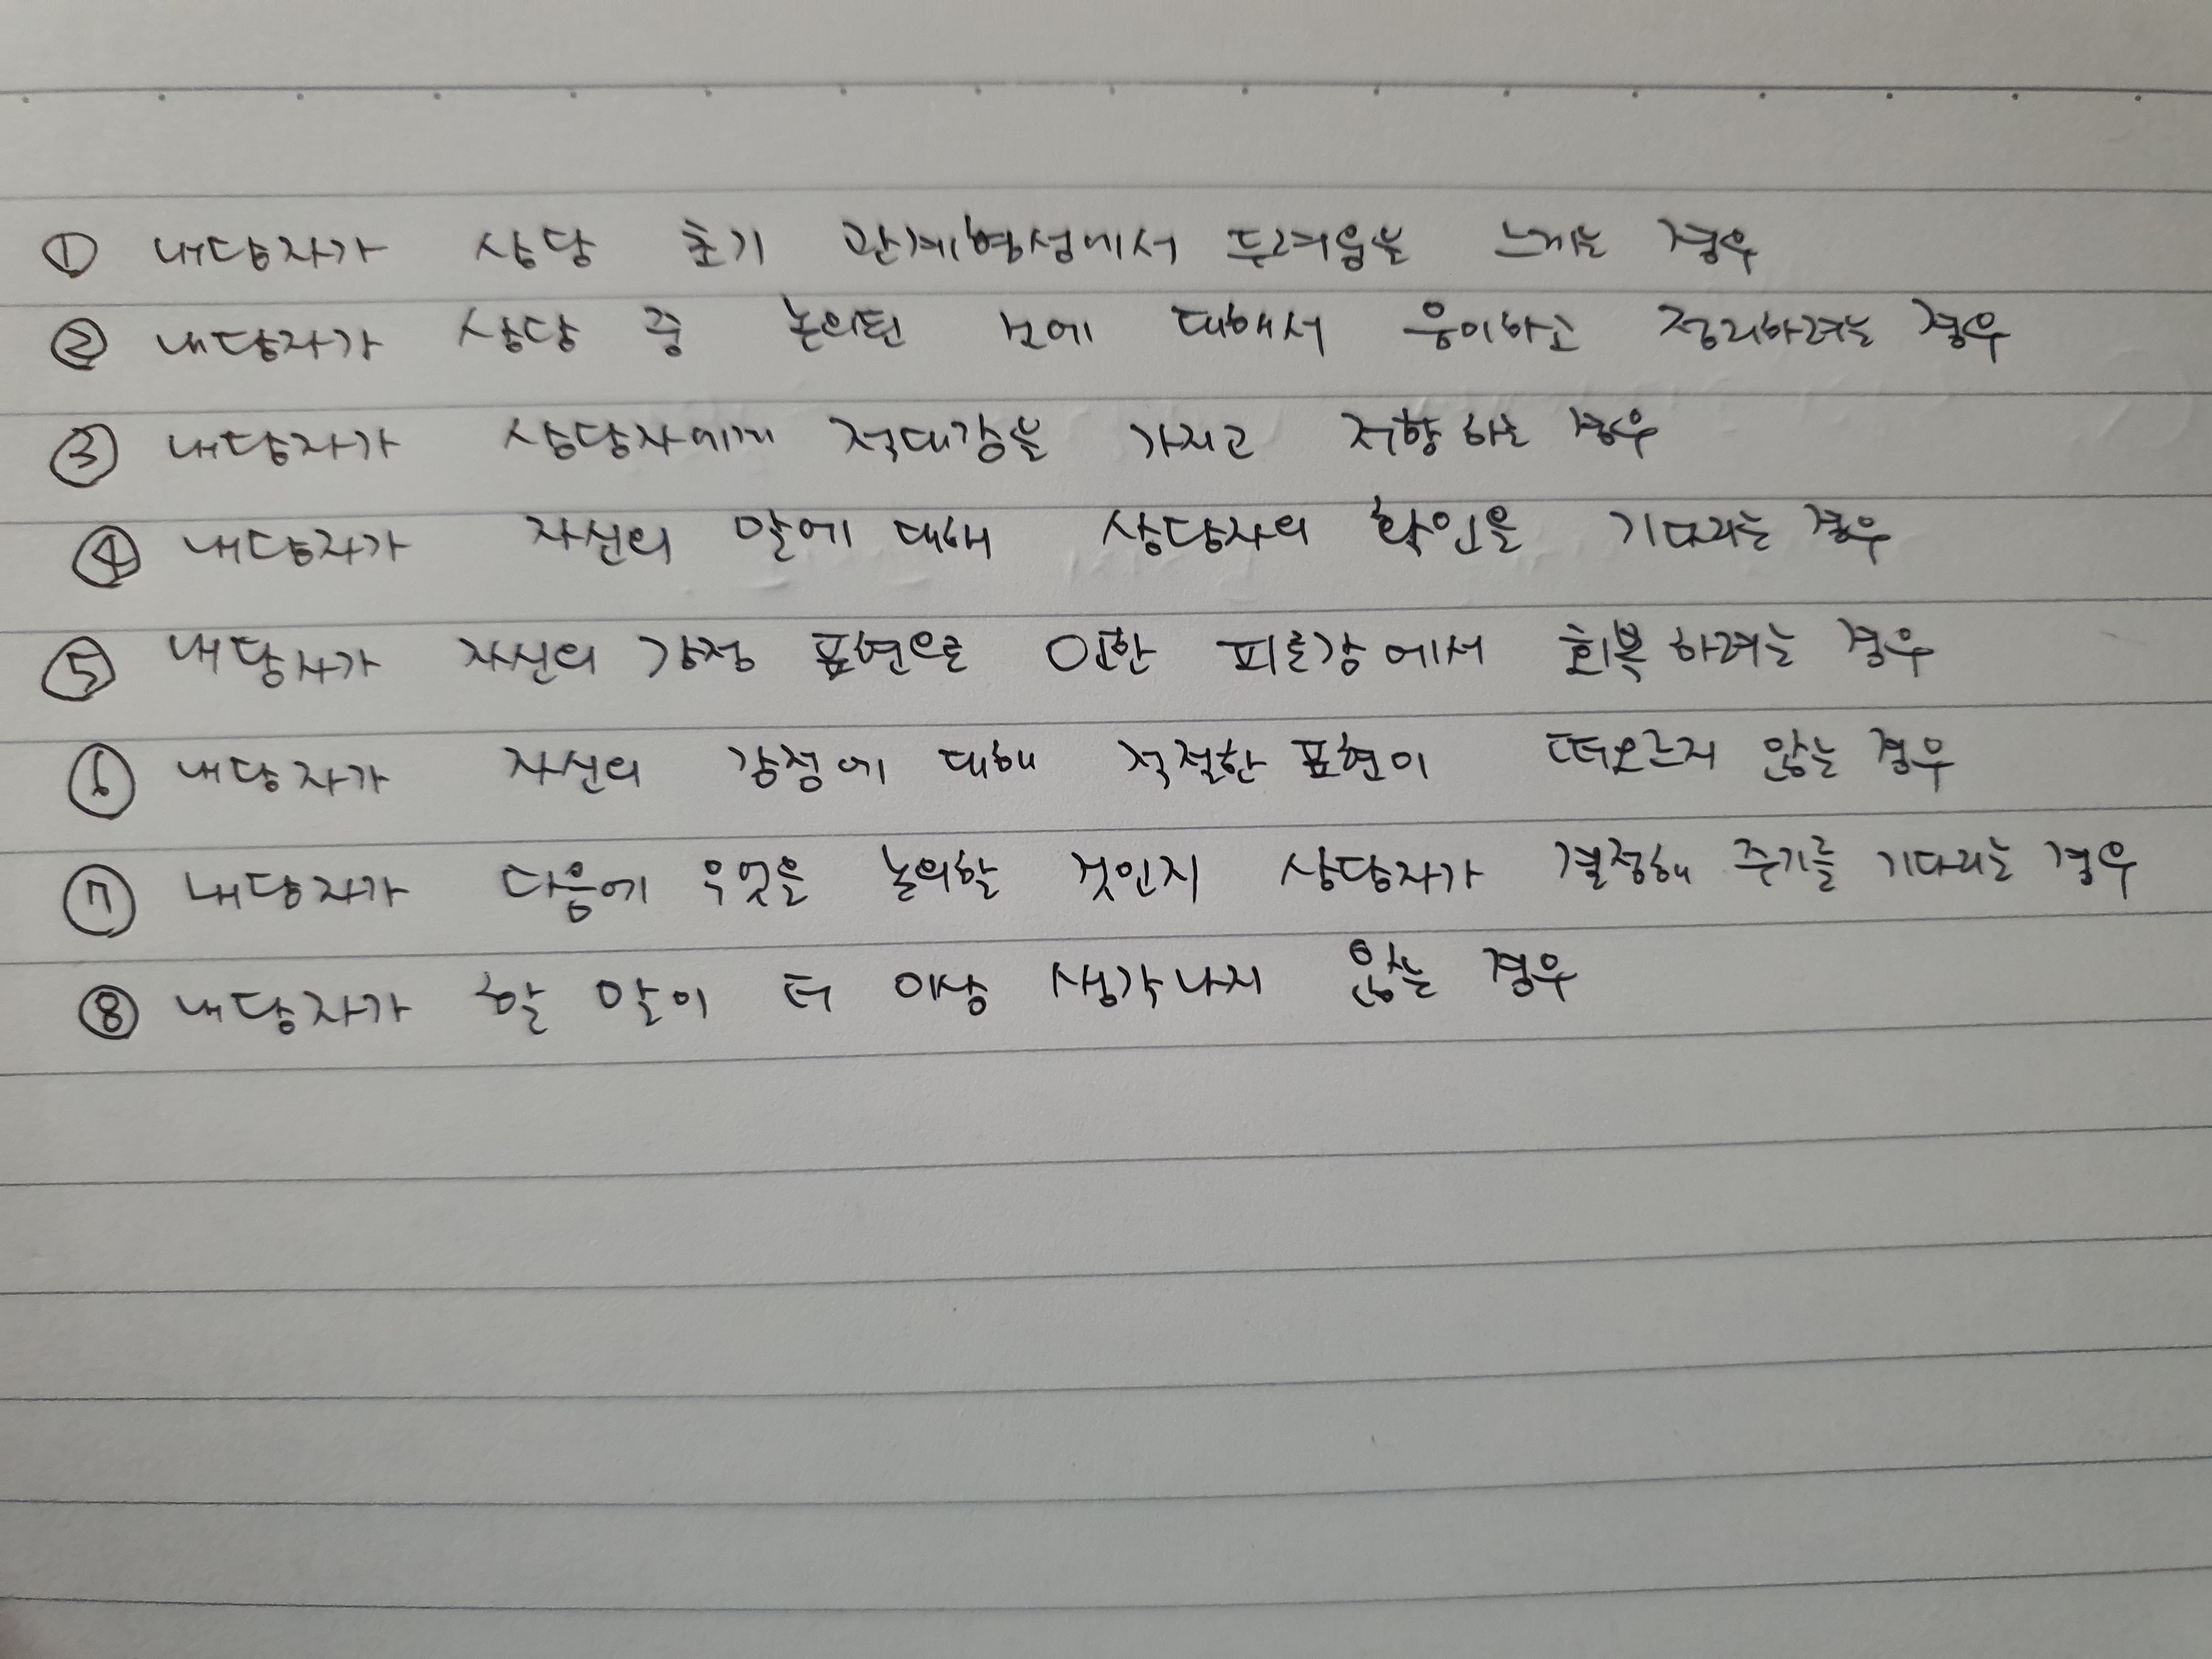 ① 내담자가 상담 초기 관계형성에서 두려움을 느끼는 경우
② 내담자가 상담 중 논의된 것에 대해서 음미하고 정리하려는 경우
③ 내담자가 상담자에게 적대감을 가지고 저항하는 경우
④ 내담자가 자신의 말에 대해 상담자의 확인을 기다리는 경우
⑤ 내담자가 자신의 감정 표현으로 인한 피로감에서 회복하려는 경우
⑥ 내담자가 자신의 감정에 대해 적절한 표현이 떠오르지 않는 경우
⑦ 내담자가 다음에 무엇을 논의할 것인지 상담자가 결정해 주기를 기다리는 경우
⑧ 내담자가 할 말이 더 이상 생각나지 않는 경우